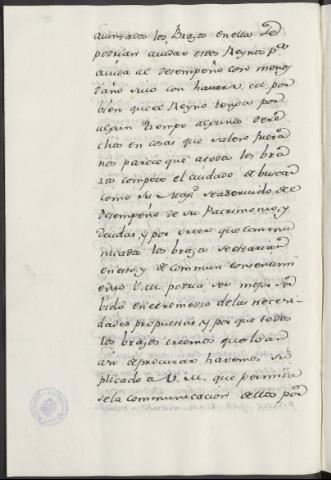 quintados los Brazos en ella se
podrian ayudar estos Reynos p.ª
ayuda al desempeño con menos
daño suio con haver a
bien que el Reyno tenga por
algun tiempo algunos dere
chos en cosas que salen fuera
nos parece que a todos los bra
zos compete el cuidado de buscar
como su Mag.d sea servido, de el
desempeño de su Patrimonio, y
deudas, y por creer que commu
nicados los brazos se
en esto, y de commun consentimi
ento V.M. podria ser mejor ser
bido en el remedio de las necesi
dades propuestas, y por que todos
los brazos creemos que lo an
asi de procurar havemos su
plicado a V.M. que permitie
se la communicacion dellos por